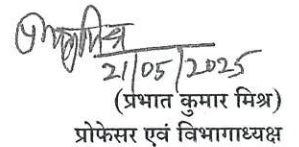 21/05/2025
(प्रभात कुमार मिश्र)
प्रोफेसर एवं विभागाध्यक्ष